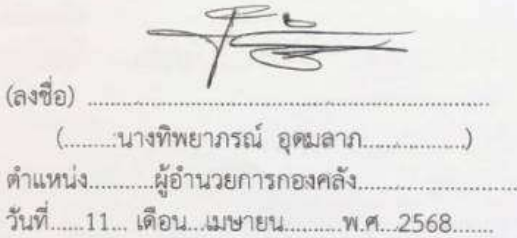 (ลงชื่อ) ............................................................
(.........นางทิพยาภรณ์ อุดมลาภ.................)
ตำแหน่ง..........ผู้อำนวยการกองคลัง........................
วันที่......11... เดือน...เมษายน.........พ.ศ...2568.......